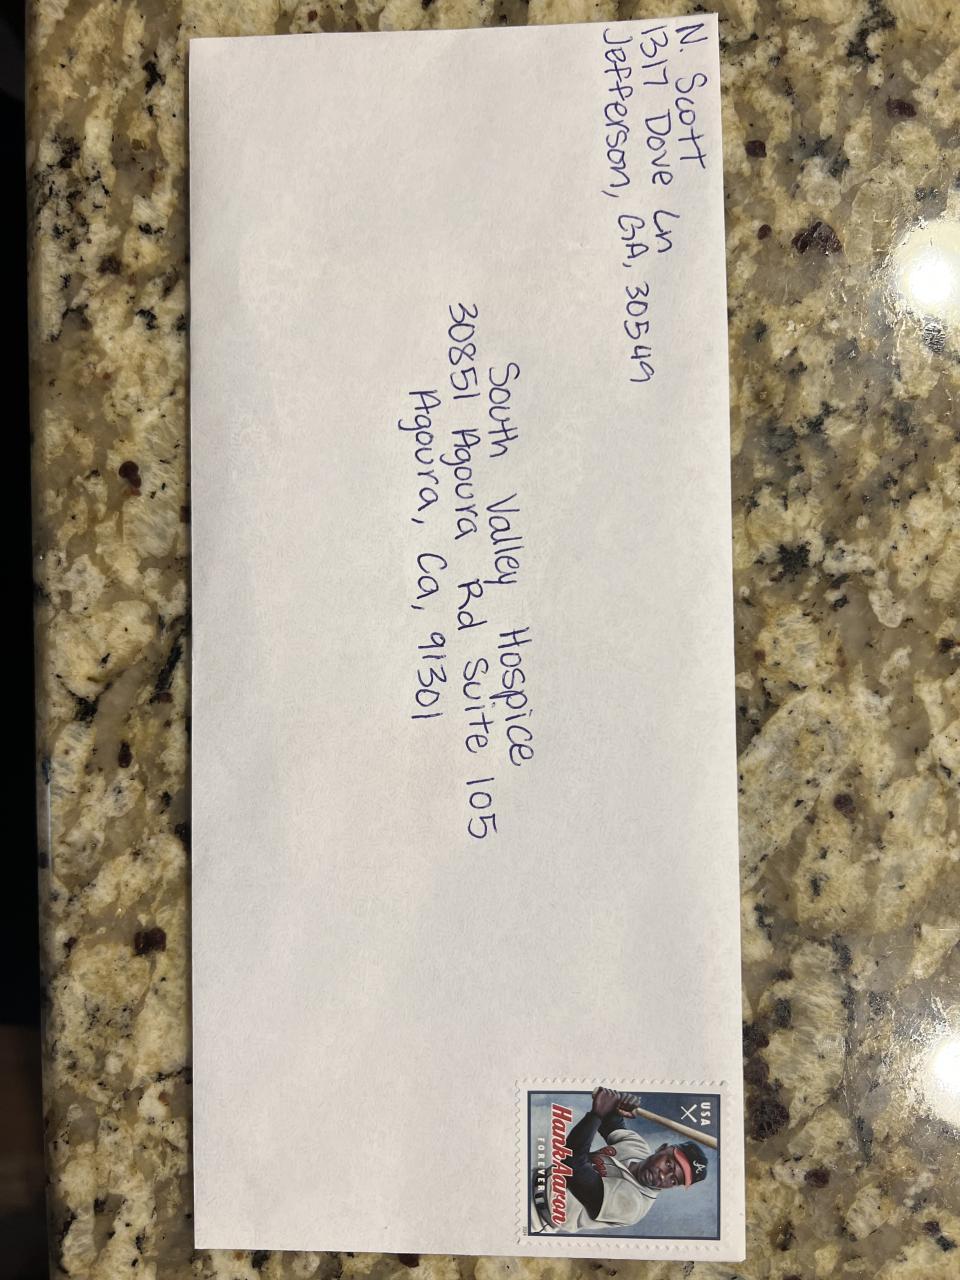 N. Scott
1317 Dove Ln
Jefferson, GA, 30549
South Valley Hospice
30851 Agoura Rd Suite 105
Agoura, Ca, 91301
USA
Hank Aaron
FOREVER